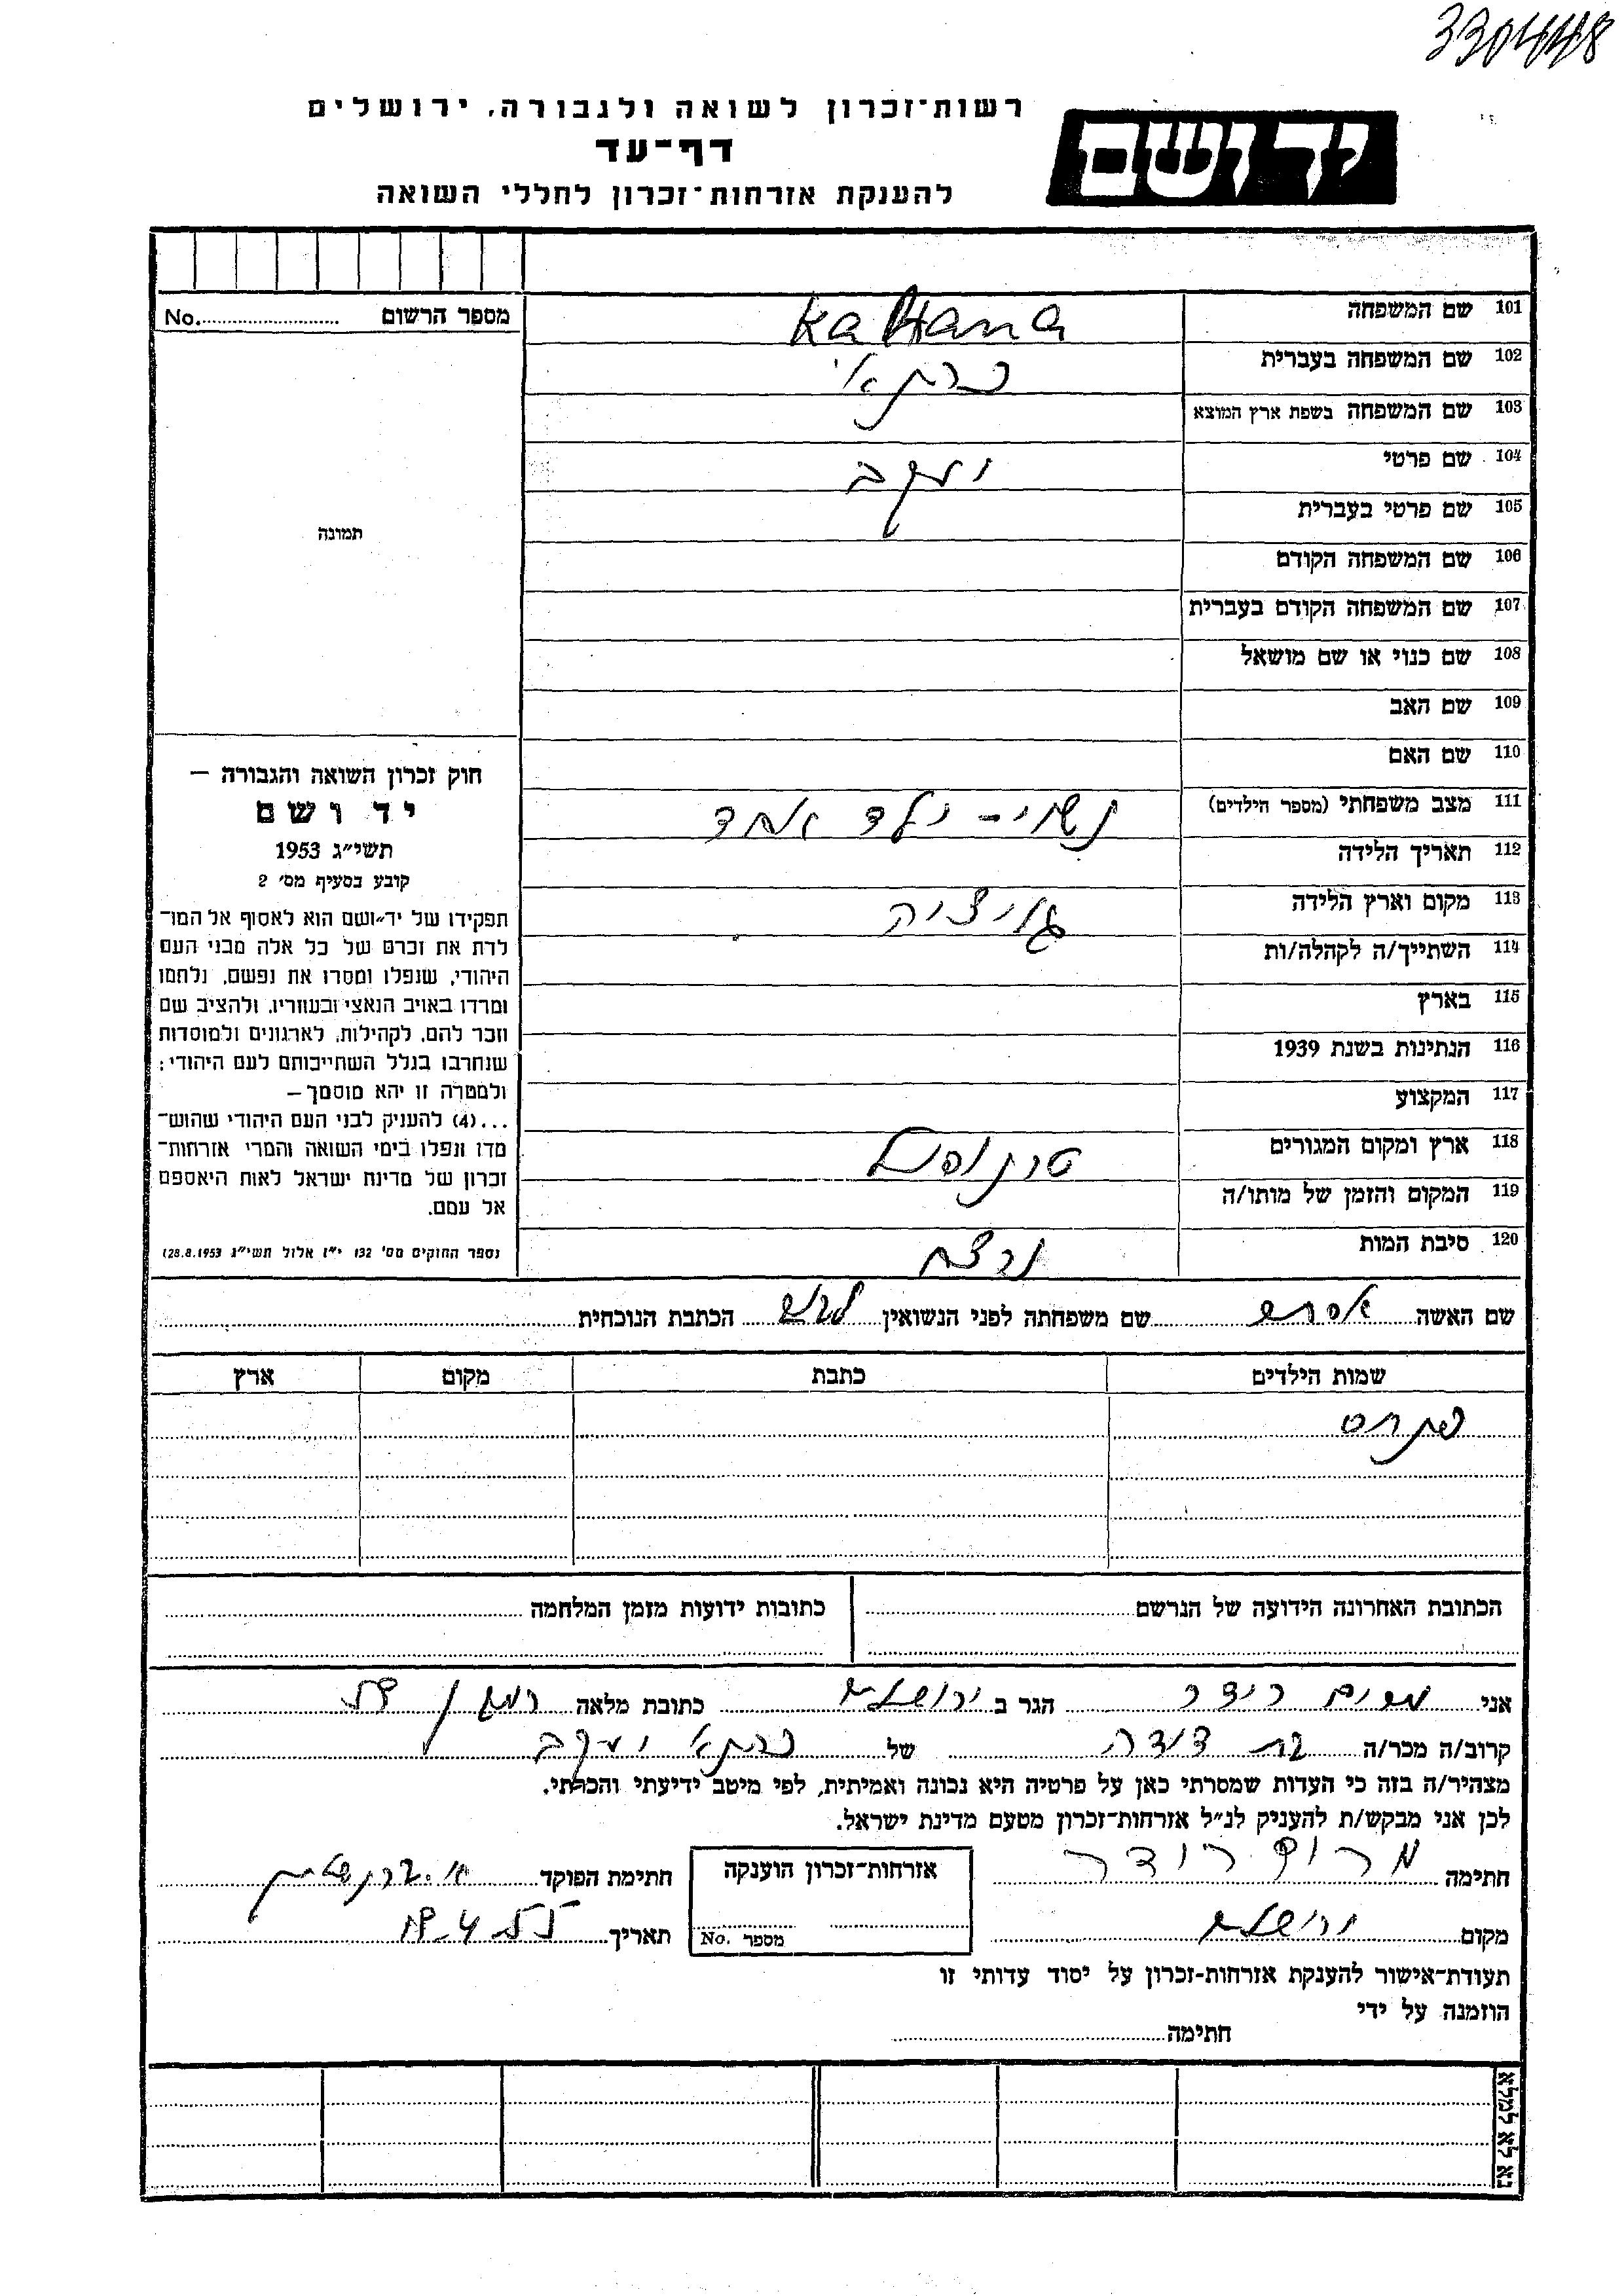 3304448
רשות־זכרון לשואה ולגבורה, ירושלים
דף־עד
להענקת אזרחות־זכרון לחללי השואה
יד ושם
מספר הרשום No.
101 שם המשפחה Kahana
102 שם המשפחה בעברית
103 שם המשפחה בשפת ארץ המוצא
104 שם פרטי יעקב
105 שם פרטי בעברית
תמונה
106 שם המשפחה הקודם
107 שם המשפחה הקודם בעברית
108 שם כנוי או שם מושאל
109 שם האב
110 שם האם
111 מצב משפחתי (מספר הילדים) נשוי - ילד אחד
112 תאריך הלידה
113 מקום וארץ הלידה גליציה
114 השתייך/ה לקהלה/ות
115 בארץ
116 הנתינות בשנת 1939
117 המקצוע
118 ארץ ומקום המגורים טרנופול
119 המקום והזמן של מותו/ה
120 סיבת המות נרצח
חוק זכרון השואה והגבורה —
יד ושם
תשי״ג 1953
קובע בסעיף מס׳ 2
תפקידו של יד־ושם הוא לאסוף אל המו־
לדת את זכרם של כל אלה מבני העם
היהודי, שנפלו ומסרו את נפשם, נלחמו
ומרדו באויב הנאצי ובעוזריו, ולהציב שם
וזכר להם, לקהילות, לארגונים ולמוסדות
שנחרבו בגלל השתייכותם לעם היהודי;
ולמטרה זו יהא מוסמך—
...(4) להעניק לבני העם היהודי שהוש־
מדו ונפלו בימי השואה והמרי אזרחות־
זכרון של מדינת ישראל לאות היאספם
אל עמם.
(ספר החוקים מס׳ 132 י״ז אלול תשי״ג 28.8.1953)
שם האשה אסתר שם משפחתה לפני הנשואין הכתבת הנוכחית
שמות הילדים כתבת מקום ארץ
פנחס
הכתובת האחרונה הידועה של הנרשם כתובות ידועות מזמן המלחמה
אני מרים רידר הגר ב ירושלים כתובת מלאה
קרוב/ה מכר/ה בת דודה של כהנא יעקב
מצהיר/ה בזה כי העדות שמסרתי כאן על פרטיה היא נכונה ואמיתית, לפי מיטב ידיעתי והכרתי.
לכן אני מבקש/ת להעניק לנ״ל אזרחות־זכרון מטעם מדינת ישראל.
חתימה מרים רידר אזרחות־זכרון הוענקה חתימת הפוקד
מקום ירושלים מספר No. תאריך 18.4.55
תעודת־אישור להענקת אזרחות־זכרון על יסוד עדותי זו
הוזמנה על ידי
חתימה
נא לא למלא